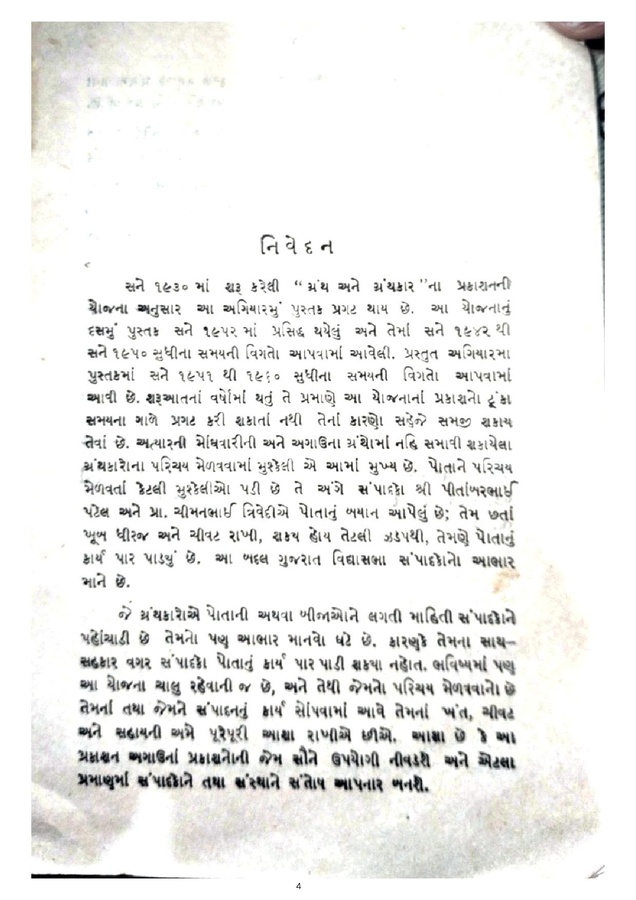 નિવેદન
સને ૧૯૩૦ માં શરૂ કરેલી “ ગ્રંથ અને ગ્રંથકાર ”ના પ્રકાશનની
યોજના અનુસાર આ અગિયારમું પુસ્તક પ્રગટ થાય છે. આ યોજનાનું
દસમું પુસ્તક સને ૧૯૫૨ માં પ્રસિદ્ધ થયેલું અને તેમાં સને ૧૯૪૨ થી
સને ૧૯૫૦ સુધીના સમયની વિગતો આપવામાં આવેલી. પ્રસ્તુત અગિયારમા
પુસ્તકમાં સને ૧૯૫૧ થી ૧૯૬૦ સુધીના સમયની વિગતો આપવામાં
આવી છે. શરૂઆતનાં વર્ષોમાં થતું તે પ્રમાણે આ યોજનાનાં પ્રકાશનો ટૂંકા
સમયના ગાળે પ્રગટ કરી શકાતાં નથી તેનાં કારણો સહેજે સમજી શકાય
તેવાં છે. અત્યારની મોંઘવારીની અને અગાઉના ગ્રંથોમાં નહિ સમાવી શકાયેલા
ગ્રંથકારોના પરિચય મેળવવામાં મુશ્કેલી એ આમાં મુખ્ય છે. પોતાને પરિચય
મેળવતાં કેટલી મુશ્કેલીઓ પડી છે તે અંગે સંપાદકો શ્રી પીતાંબરભાઈ
પટેલ અને પ્રા. ચીમનભાઈ ત્રિવેદીએ પોતાનું બયાન આપેલું છે; તેમ છતાં
ખૂબ ધીરજ અને ચીવટ રાખી, શક્ય હોય તેટલી ઝડપથી, તેમણે પોતાનું
કાર્ય પાર પાડ્યું છે. આ બદલ ગુજરાત વિદ્યાસભા સંપાદકોનો આભાર
માને છે.
જે ગ્રંથકારોએ પોતાની અથવા બીજાઓને લગતી માહિતી સંપાદકોને
પહોંચાડી છે તેમનો પણ આભાર માનવો ઘટે છે. કારણકે તેમના સાથ–
સહકાર વગર સંપાદકો પોતાનું કાર્ય પાર પાડી શક્યા નહોત. ભવિષ્યમાં પણ
આ યોજના ચાલુ રહેવાની જ છે, અને તેથી જેમનો પરિચય મેળવવાનો છે
તેમનાં તથા જેમને સંપાદનનું કાર્ય સોંપવામાં આવે તેમનાં ખંત, ચીવટ
અને સહાયની અમે પૂરેપૂરી આશા રાખીએ છીએ. આશા છે કે આ
પ્રકાશન અગાઉનાં પ્રકાશનોની જેમ સૌને ઉપયોગી નીવડશે અને એટલા
પ્રમાણમાં સંપાદકોને તથા સંસ્થાને સંતોષ આપનાર બનશે.
4